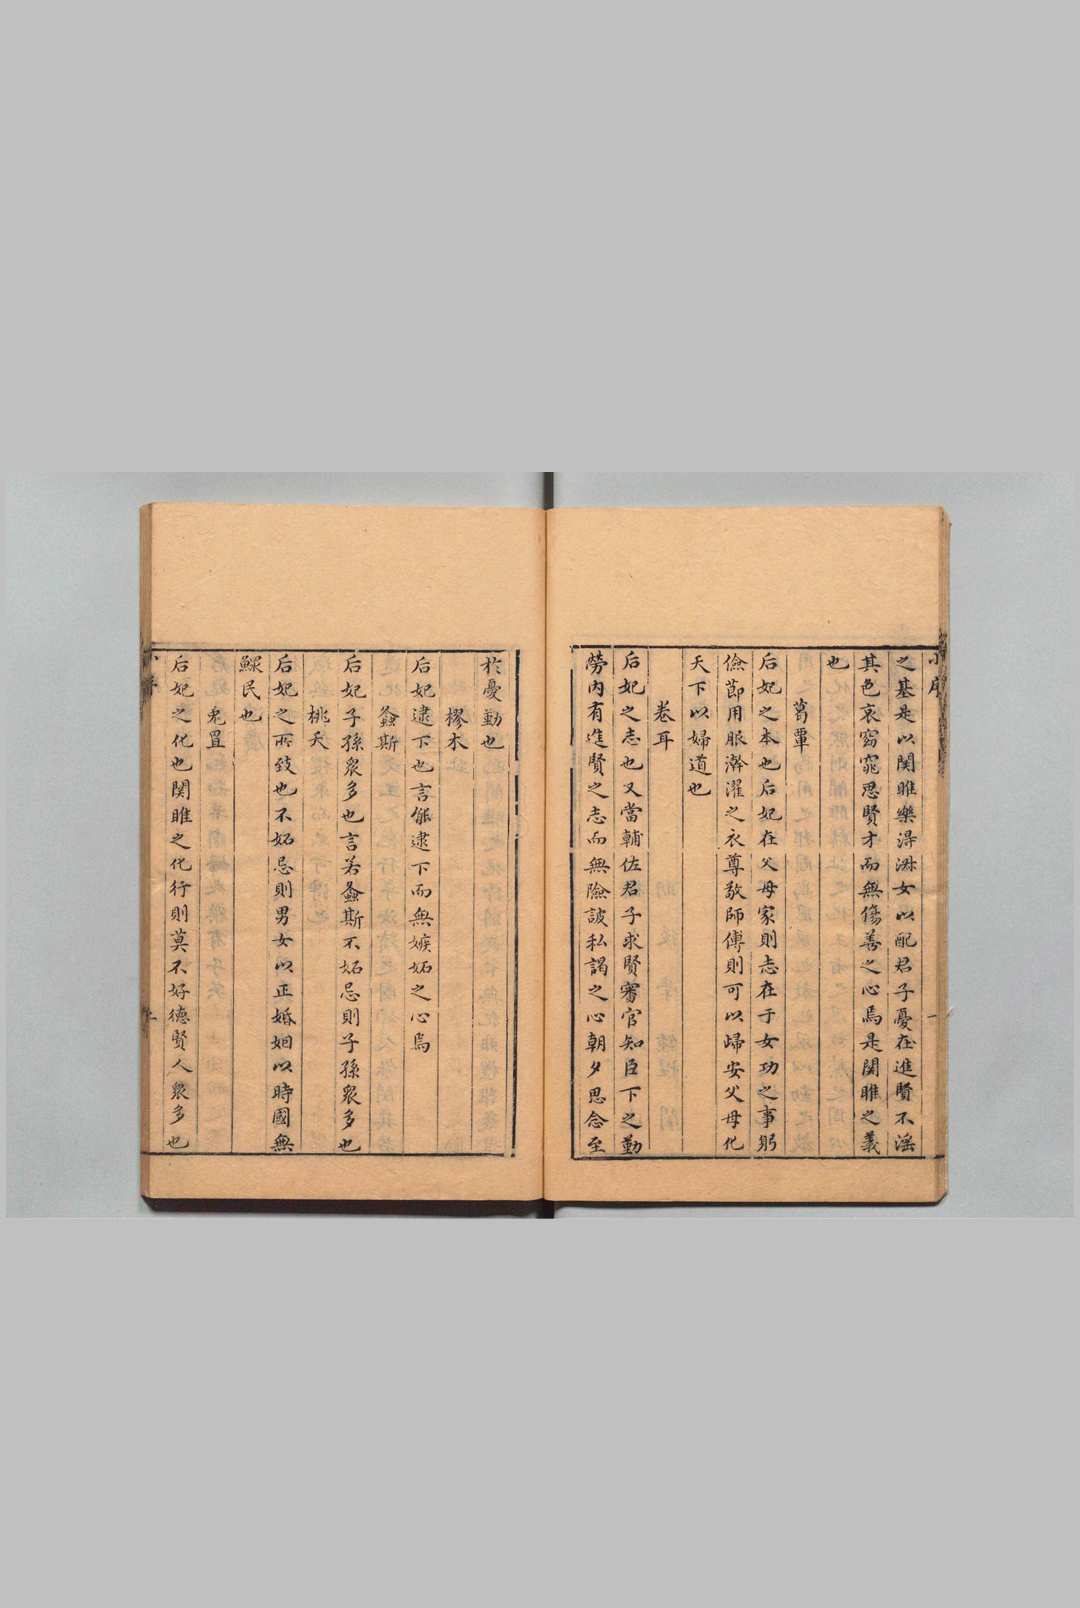 之基是以関雎樂得淑女以配君子憂在進賢不淫
其色哀窈窕思賢才而無傷善之心焉是関雎之義
也
葛覃
后妃之本也后妃在父母家則志在于女功之事躬
儉節用服澣濯之衣尊敬師傅則可以歸安父母化
天下以婦道也
卷耳
后妃之志也又當輔佐君子求賢審官知臣下之勤
勞內有進賢之志而無險詖私謁之心朝夕思念至
於憂勤也
樛木
后妃逮下也言能逮下而無嫉妬之心焉
螽斯
后妃子孫衆多也言若螽斯不妬忌則子孫衆多也
桃夭
后妃之所致也不妬忌則男女以正婚姻以時國無
鰥民也
兎罝
后妃之化也関雎之化行則莫不好德賢人衆多也